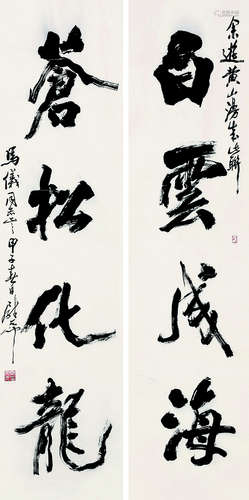 白雲成海
余遊黄山得此聯
蒼松化龍
馬儀同志 甲子春日